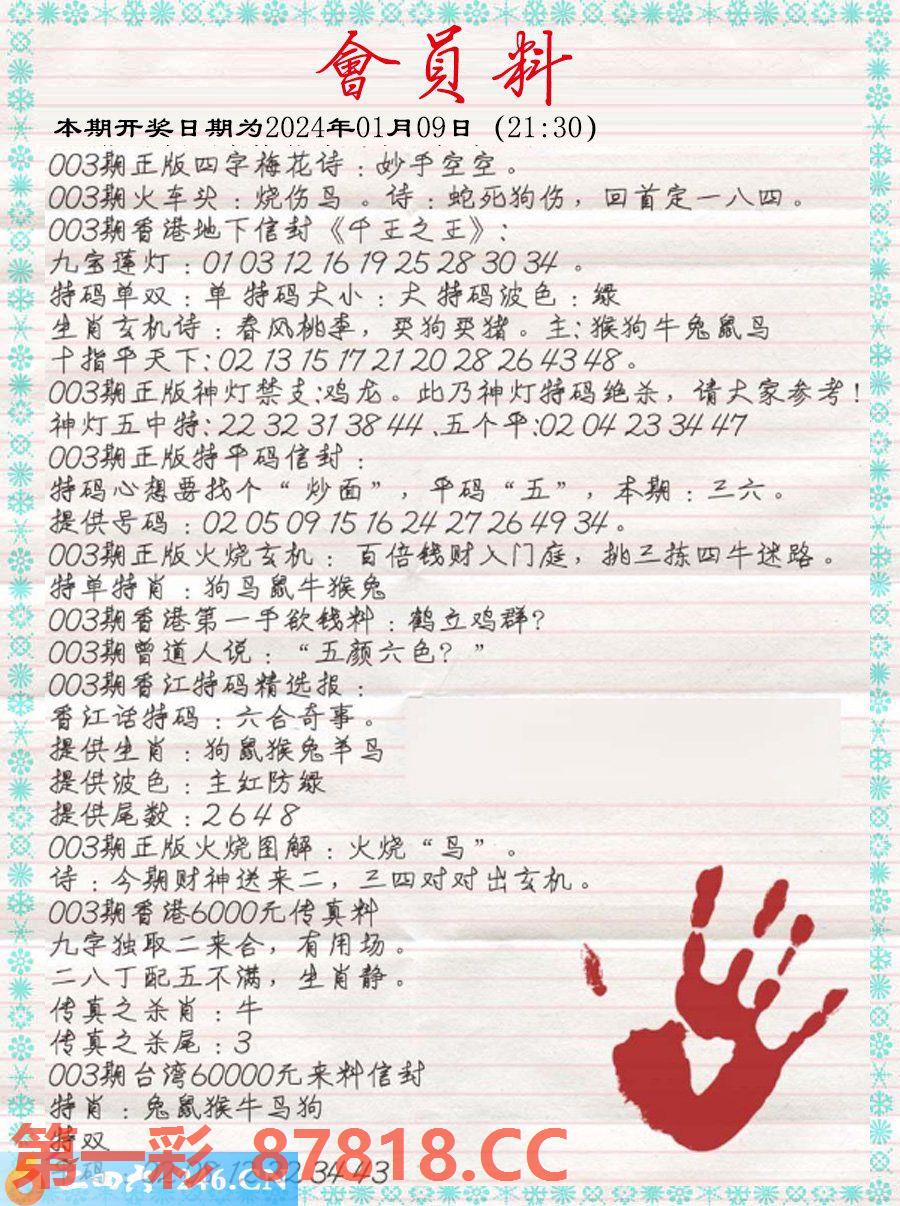 會員料
本期开奖日期为2024年01月09日 (21:30)
003期正版四字梅花诗：妙手空空。
003期火车头：烧伤鸟 。诗：蛇死狗伤，回首定一八四。
003期香港地下信封《千王之王》：
九宝莲灯：01 03 12 16 19 25 28 30 34 。
特码单双：单 特码大小：大 特码波色：绿
生肖玄机诗：春风桃李，买狗买猪。主：猴狗牛兔鼠马
十指平天下：02 13 15 17 21 20 28 26 43 48。
003期正版神灯禁支:鸡龙。此乃神灯特码绝杀，请大家参考！
神灯五中特：22 32 31 38 44 、五个平:02 04 23 34 47
003期正版特平码信封：
特码心想要找个“ 炒面”，平码“五”，本期：三六。
提供号码：02 05 09 15 16 24 27 26 49 34。
003期正版火烧玄机：百倍钱财入门庭，挑三拣四牛迷路。
特单特肖：狗马鼠牛猴兔
003期香港第一手欲钱料：鹤立鸡群？
003期曾道人说：“五颜六色？”
003期香江特码精选报：
香江话特码：六合奇事。
提供生肖：狗鼠猴兔羊马
提供波色：主红防绿
提供尾数：2 6 4 8
003期正版火烧图解：火烧“鸟”。
诗：今期财神送来二，三四对对出玄机。
003期香港6000元传真料
九字独取二来合，有用场。
二八丁配五不满，生肖静。
传真之杀肖：牛
传真之杀尾：3
003期台湾60000元来料信封
特肖：兔鼠猴牛马狗
特双
第一彩 87818.CC
32 34 43
246.CN